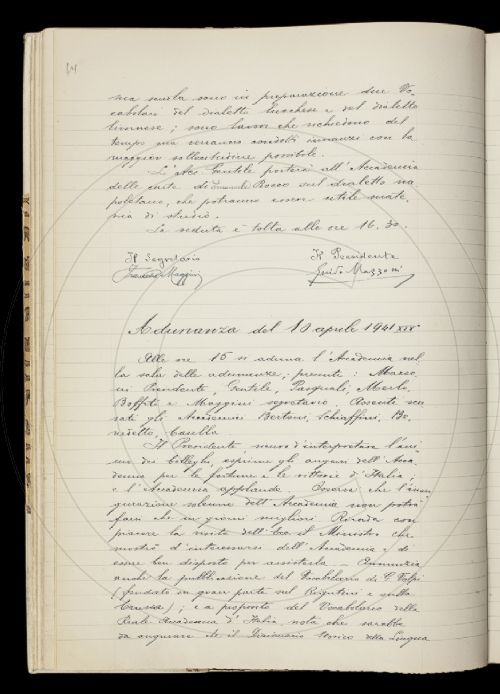 sua scuola sono in preparazione due Vo-
cabolari del dialetto lucchese e del dialetto
livornese; sono lavori che richiedono del
tempo ma verranno condotti innanzi con la
maggior sollecitudine possibile.
L'acc.o Gentile porterà all'Accademia
delle carte di Emanuele Rocco sul dialetto na-
poletano, che potranno essere utile mate-
ria di studio.
La seduta è tolta alle ore 16.30.
Il Segretario Il Presidente
Francesco Maggini Guido Mazzoni
Adunanza del 10 aprile 1941 XIX
Alle ore 15 si aduna l'Accademia nel
la sala delle adunanze; presenti: Mazzo-
ni Presidente, Gentile, Pasquali, Merlo,
Boffito e Maggini segretario. Assenti scu-
sati gli Accademici Bertoni, Schiaffini, Be-
nedetto, Casella.
Il Presidente sicuro d'interpretare l'ani-
mo dei Colleghi, esprime gli auguri dell'Acca-
demia per le fortune e le vittorie d'Italia,
e l'Accademia applaude. Osserva che l'inau-
gurazione solenne dell'Accademia non potrà
farsi che in giorni migliori. Ricorda con
piacere la visita dell'Ecc. il Ministro che
mostrò d'interessarsi dell'Accademia e di
essere ben disposto per assisterla. - Annunzia
anche la pubblicazione del Vocabolario di G. Volpi
(fondato in gran parte sul Rigutini e sulla
Crusca); e a proposito del Vocabolario della
Reale Accademia d'Italia, nota che sarebbe
da augurare che il Dizionario Storico della Lingua